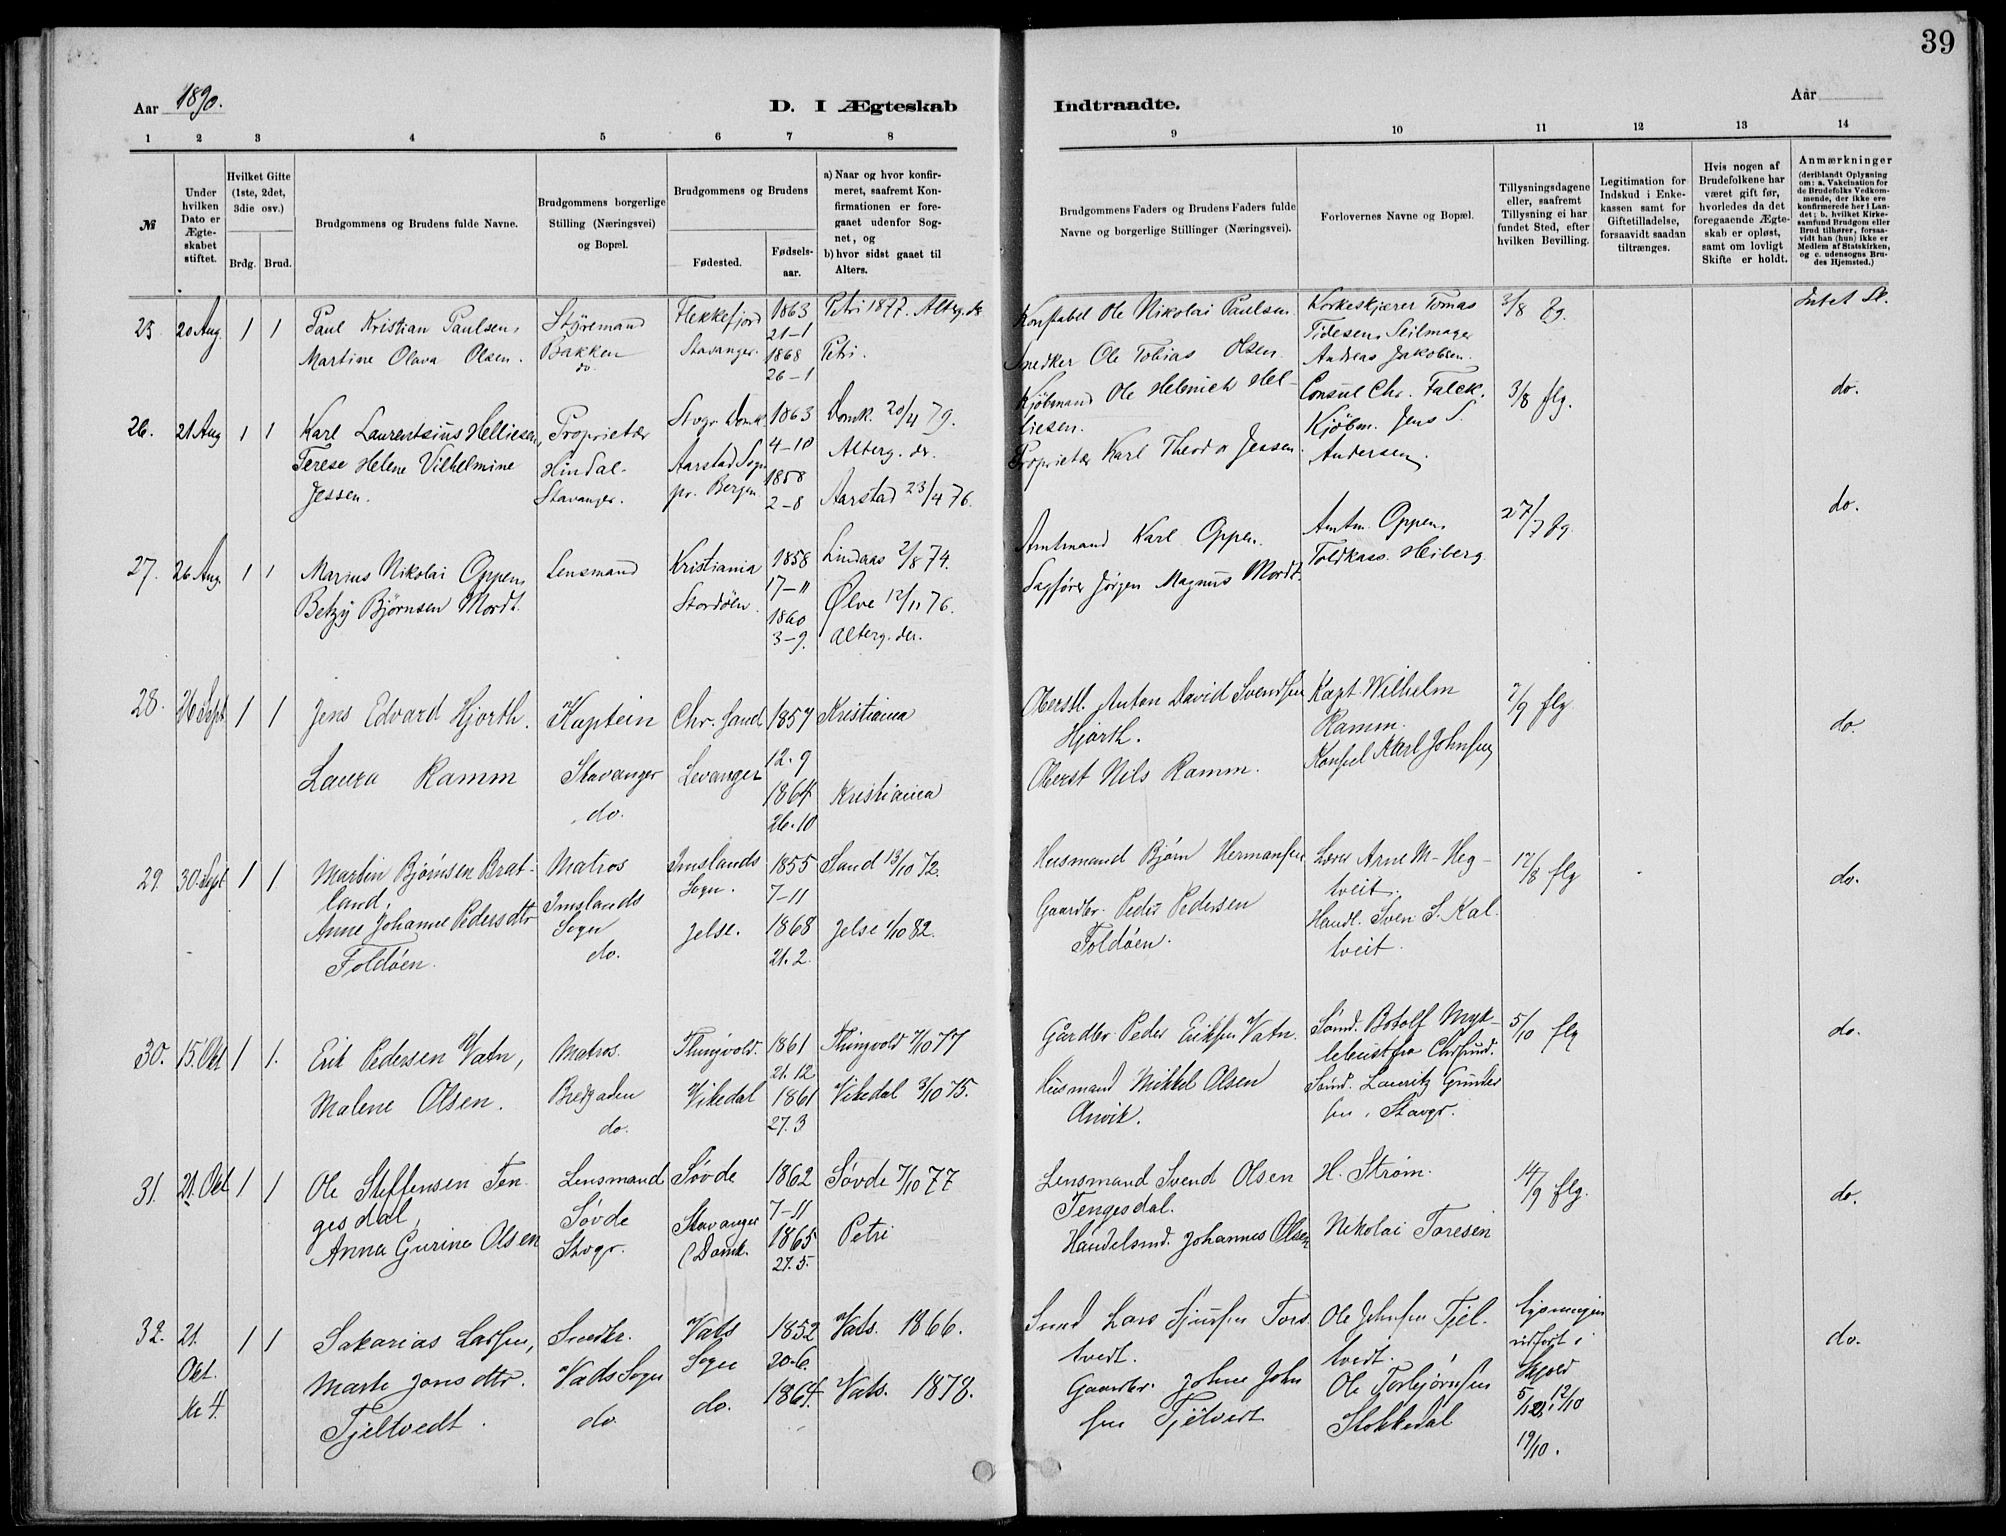 39
Aar 1890.
D. I Ægteskab Indtraadte.
Aar
1 2 3 4 5 6 7 8 9 10 11 12 13 14
№
Under hvilken Dato er Ægteskabet stiftet.
Hvilket Gifte (1ste, 2det, 3die osv.)
Brdg. Brud.
Brudgommens og Brudens fulde Navne.
Brudgommens borgerlige Stilling (Næringsvei) og Bopæl.
Brudgommens og Brudens
Fødested.
Fødsels-aar.
a) Naar og hvor konfirmeret, saafremt Konfirmationen er foregaaet udenfor Sognet, og
b) hvor sidst gaaet til Alters.
Brudgommens Faders og Brudens Faders fulde Navne og borgerlige Stillinger (Næringsvei).
Forlovernes Navne og Bopæl.
Tillysningsdagene eller, saafremt Tillysning ei har fundet Sted, efter hvilken Bevilling.
Legitimation for Indskud i Enkekassen samt for Giftetilladelse, forsaavidt saadan tiltrænges.
Hvis nogen af Brudefolkene har været gift før, hvorledes da det foregaaende Ægteskab er opløst, samt om lovligt Skifte er holdt.
Anmærkninger
(deriblandt Oplysning om: a. Vakcination for de Brudefolks Vedkommende, der ikke ere konfirmerede her i Landet; b. hvilket Kirkesamfund Brudgom eller Brud tilhører, forsaavidt han (hun) ikke er Medlem af Statskirken, og c. udensogns Brudes Hjemsted.)
25. 20 Aug. 1 1
Paul Kristian Paulsen,
Martine Olava Olsen.
Styremand
Bakken
do
Flekkefjord
Stavanger.
1863
21-1
1868
26-1
Petri 1877. Alterg. do
Petri.
Konstabel Ole Nikolai Paulsen
Snedker Ole Tobias Olsen
Korkeskjærer Tomas
Tidesen, Seilmager
Andreas Jakobsen.
3/8 flg.
Intet Sk.
26. 21 Aug 1 1
Karl Laurentsius Helliesen,
Terese Helene Vilhelmine
Jessen.
Proprietær
Hindal-
Stavanger.
Stvgr Domk.
Aarstad Sogn
pr. Bergen
1863
4-10
1858
2-8
Domk. 20/4 79.
Alterg. do.
Aarstad 23/4 76.
Kjøbmand Ole Helmich Hel-
liesen.
Proprietær Karl Theodor Jessen.
Consul Chr. Falck.
Kjøbm. Jens S.
Andersen
3/8 flg.
do.
27. 26 Aug 1 1
Marius Nikolai Oppen,
Betzy Bjørnsen Mordt.
Lensmand
Kristiania
Stordøen.
1858
17-11
1860
3-9.
Lindaas 2/8 74.
Ølve 12/11 76.
Alterg. der.
Amtmand Karl Oppen.
Sagfører Jørgen Magnus Mordt.
Amtm. Oppen,
Toldkass. Heiberg
27/7 flg.
do.
28. 26 Sept 1 1
Jens Edvard Hjorth.
Laura Ramm
Kaptein
Stavanger
do.
Chr. sand
Levanger
1857
12.9
1864
26.10
Kristiania
Kristiania
Oberstl. Anton David Svendsen
Hjorth.
Oberst Nils Ramm.
Kapt. Wilhelm
Ramm.
Konsul Karl Johnsen
7/9 flg
do.
29. 30 Sept 1 1
Martin Bjørnsen Brat-
land,
Anne Johanne Pedersdtr
Foldøen.
Matros
Imslands
Sogn
do.
Imslands
Sogn.
Jelse.
1855
7-11
1868
21.2.
Sand 13/10 72.
Jelse 1/10 82.
Husmand Bjørn Hermansen
Gaardbr. Peder Pedersen
Foldøen.
Lærer Arne M- Heg-
tveit.
Handl. Sven S. Kal-
tveit.
17/8 flg
do.
30. 15. Okt 1 1.
Erik Pedersen Vatn,
Malene Olsen.
Matros.
Bredgaden
do.
Thingvold.
Vikedal
1861
21.12
1861
27.3
Thingvold 7/10 77
Vikedal 3/10 75.
Gårdbr Peder Eriksen Vatn.
Husmand Mikkel Olsen
Anvik.
Sömd. Botolf Myk-
lebust fra Chrsund.
Sömd. Lauritz Gunder
sen, Stavgr.
5/10 flg
do.
31. 21. Okt 1 1
Ole Steffensen Ten-
gesdal,
Anna Gurine Olsen
Lensmand
Søvde
Stvgr.
Søvde
Stavanger
(Domk.
1862
7-11
1865
27.5.
Søvde 7/10 77
Petri
Lensmand Svend Olsen
Tengesdal.
Handelsmd. Johannes Olsen
H. Strøm.
Nikolai Toresen
14/9 flg.
do.
32. 21.
Okt.
Kl 4.
1 1
Sakarias Larsen,
Marte Jonsdtr.
Tjeltvedt.
Snedkr.
Vads Sogn
do
Vats
Sogn
do.
1852
20-6.
1864.
Vats. 1866.
Vats. 1878.
Tvedt.
Gaardbr. Johne John
sen Tjeltvedt
Ole Johnsen Tjel-
tvedt.
Ole Torbjørnsen
Stokkedal
Lysningen
udført i
Skjold
5/10, 12/10
19/10.
do.